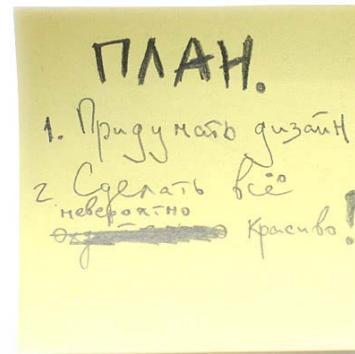 ПЛАН.
1. Придумать дизайн
2 Сделать всё
невероятно
красиво!